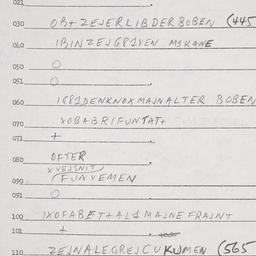 021
030 OB+ZEJERLIBDERBOBEN (445
040 IBINZEJGPIVEN MIKANE
050 O
051 O
060 IGPIDENKNOXMAJNALTER BOBEN
070 XOBABRIFUNTAT+
071 +
080 OFTER
XVEJSNIT
090 (FUNVEMEN
091 O
100 IXOFABET+ALSMAJNEFRAJNT
101 +
110 ZEJNALEGREJCUKUMEN (565